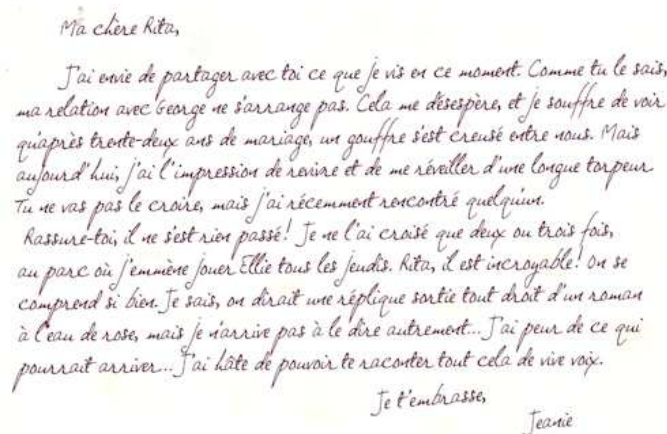 Ma chère Rita,
J'ai envie de partager avec toi ce que je vis en ce moment. Comme tu le sais,
ma relation avec George ne s'arrange pas. Cela me désespère, et je souffre de voir
qu'après trente-deux ans de mariage, un gouffre s'est creusé entre nous. Mais
aujourd'hui, j'ai l'impression de revivre et de me réveiller d'une longue torpeur.
Tu ne vas pas le croire, mais j'ai récemment rencontré quelqu'un.
Rassure-toi, il ne s'est rien passé! Je ne l'ai croisé que deux ou trois fois,
au parc où j'emmène jouer Ellie tous les jeudis. Rita, il est incroyable! On se
comprend si bien. Je sais, on dirait une réplique sortie tout droit d'un roman
à l'eau de rose, mais je n'arrive pas à le dire autrement... J'ai peur de ce qui
pourrait arriver... J'ai hâte de pouvoir te raconter tout cela de vive voix.
Je t'embrasse,
Jeanie